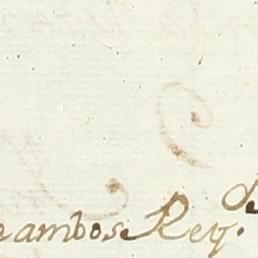 ambos Rey.